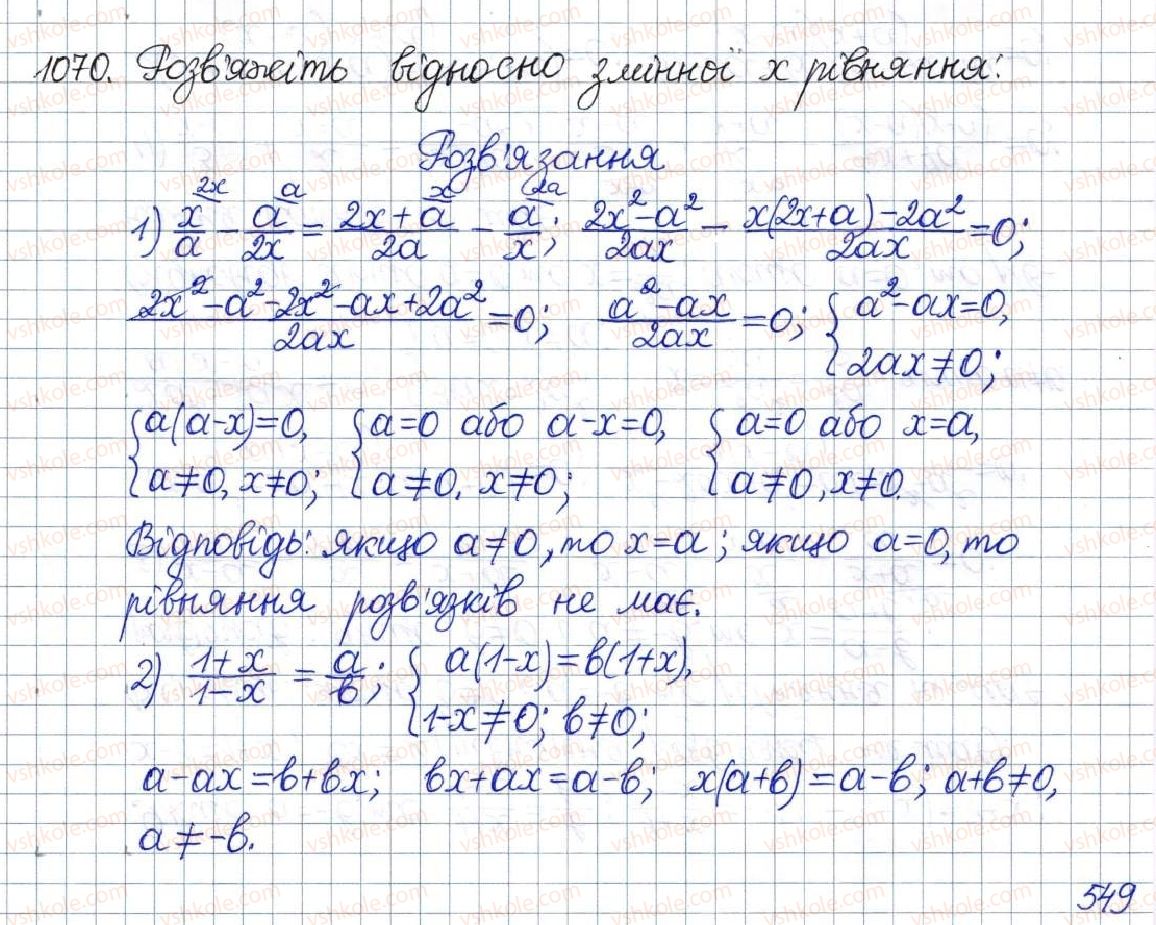 1070. Розв'яжіть відносно змінної x рівняння:
Розв'язання
1) x/a (2x) - a/2x (a) = 2x+a/2a (x) - a/x (2a); 2x²-a²/2ax - x(2x+a)-2a²/2ax =0;
2x²-a²-2x²-ax+2a²/2ax =0; a²-ax/2ax =0; { a²-ax=0, 2ax≠0;
{ a(a-x)=0, a≠0, x≠0; { a=0 або a-x=0, a≠0, x≠0; { a=0 або x=a, a≠0, x≠0.
Відповідь: якщо a≠0, то x=a; якщо a=0, то
рівняння розв'язків не має.
2) 1+x/1-x = a/b; { a(1-x)=b(1+x), 1-x≠0; b≠0;
a-ax=b+bx; bx+ax=a-b; x(a+b)=a-b; a+b≠0,
a≠-b.
549
vshkole.com